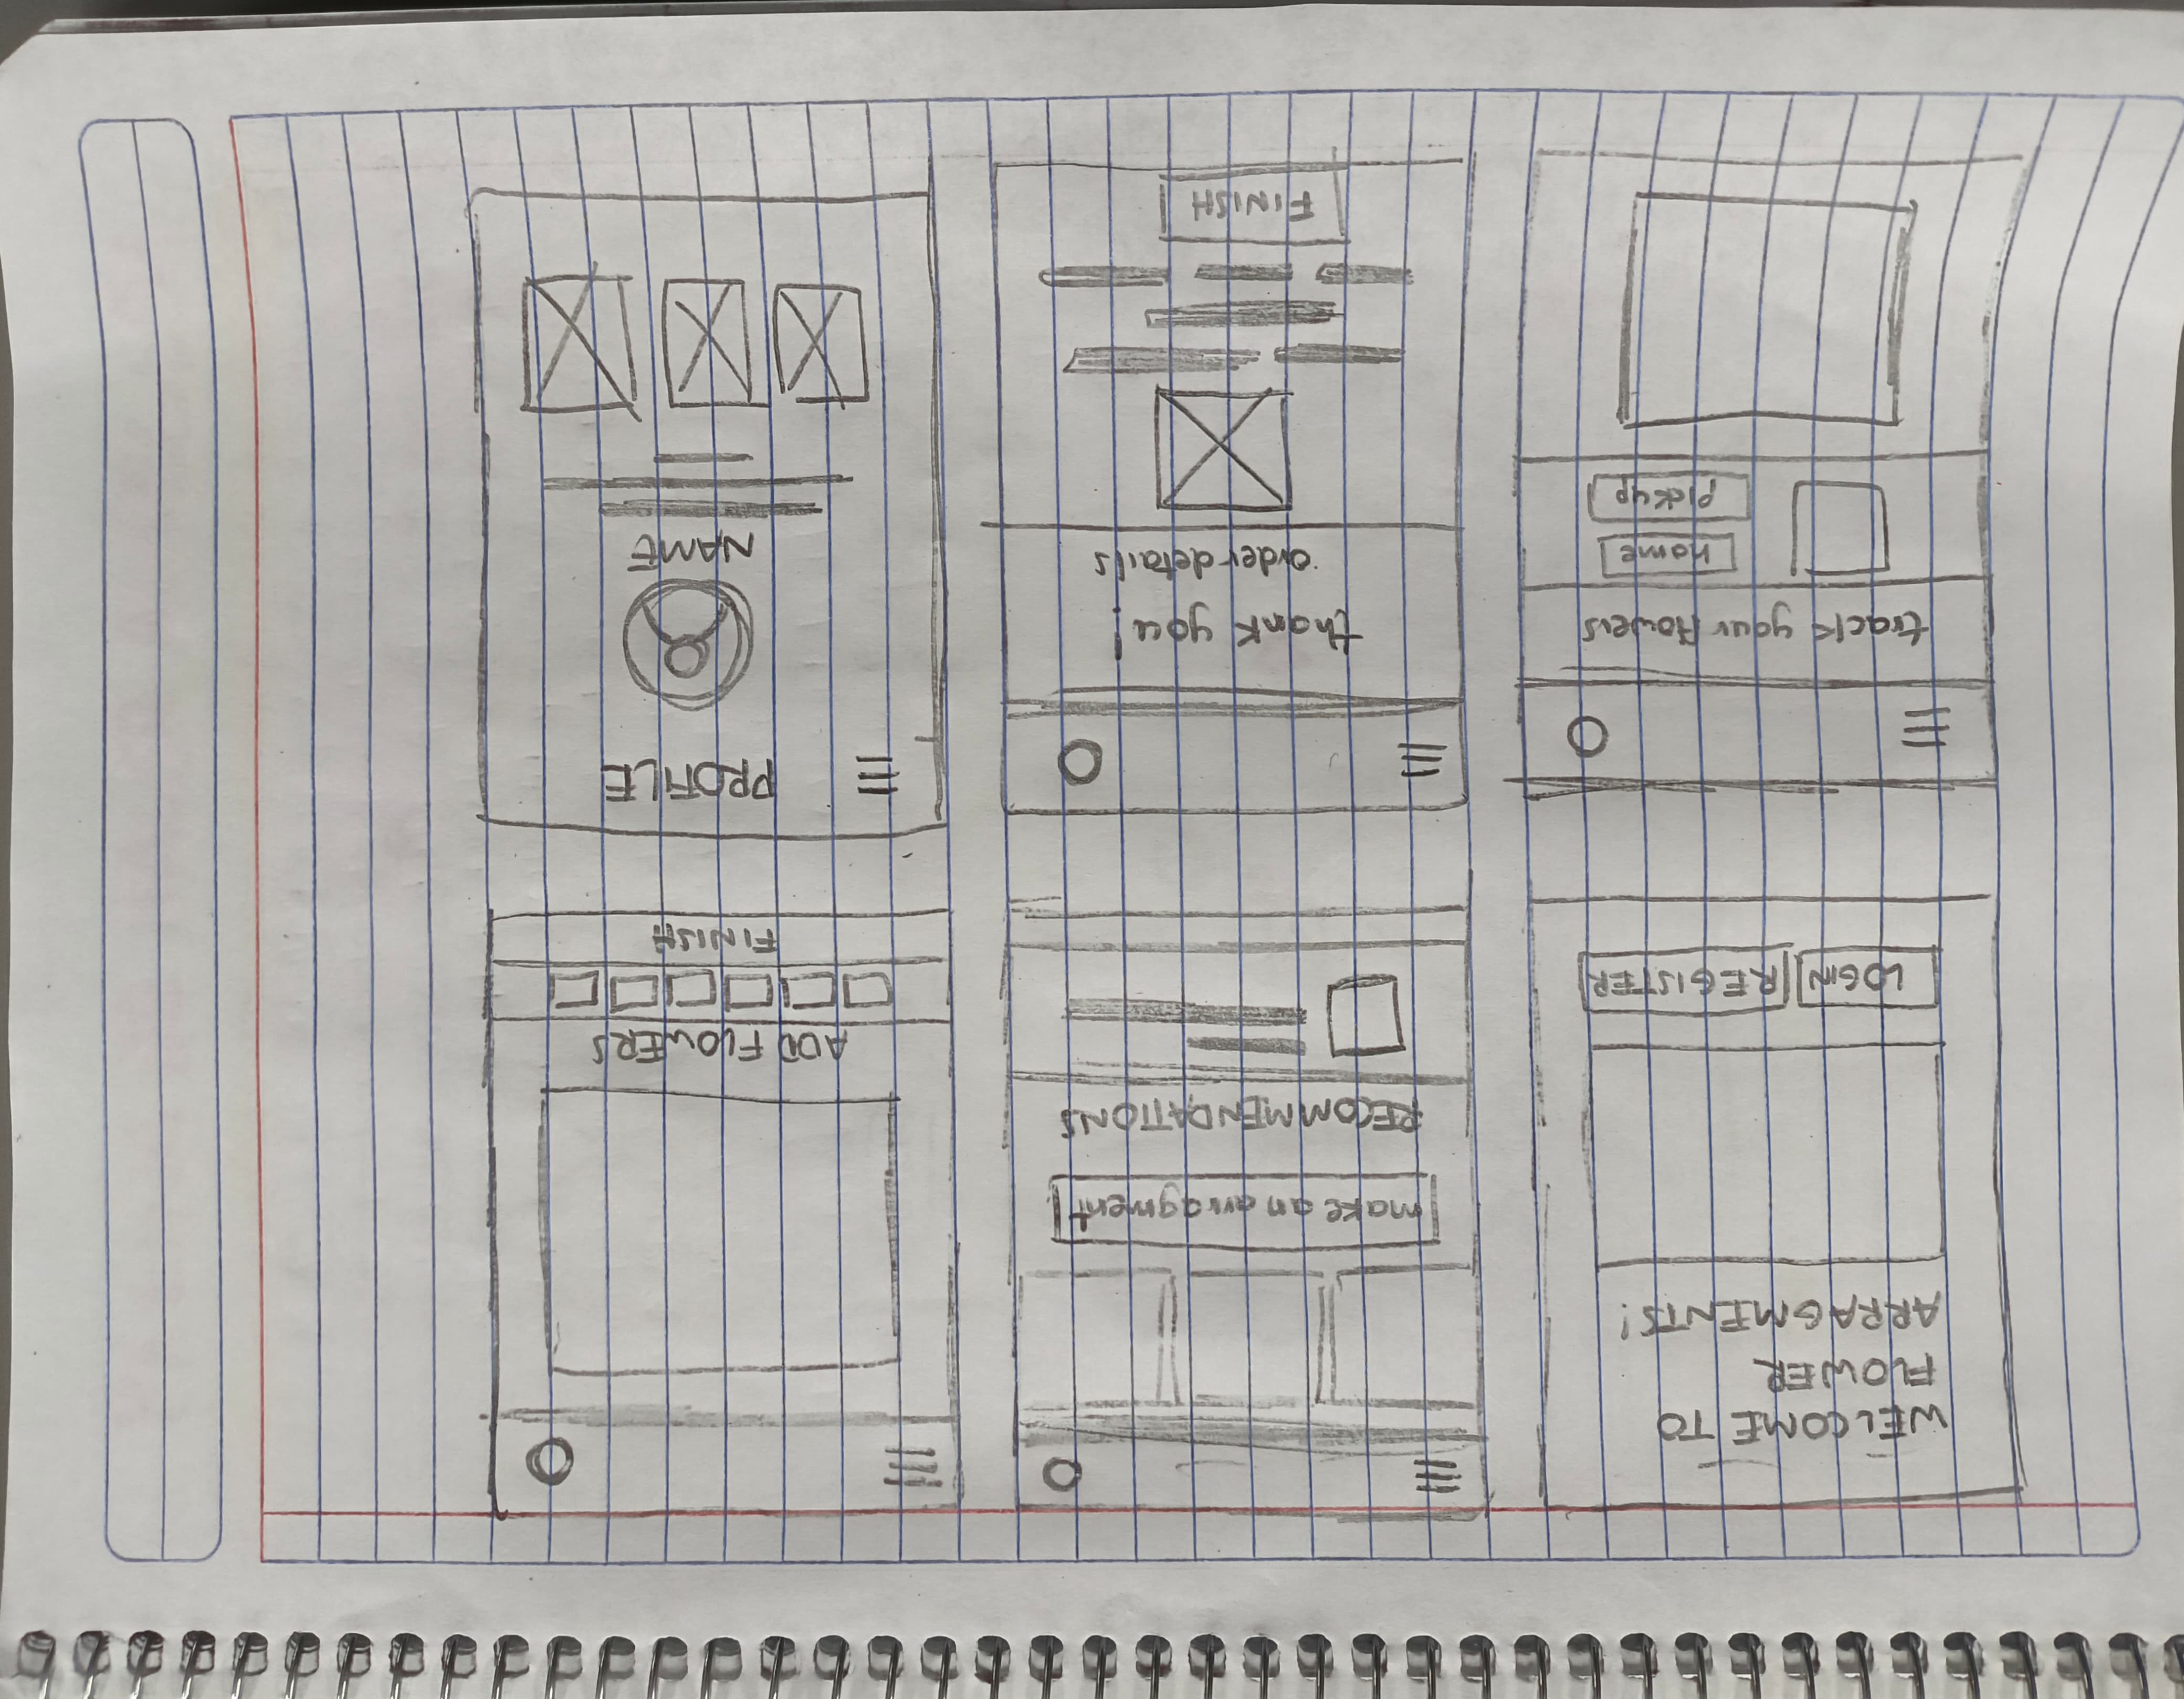 WELCOME TO
FLOWER
ARRAGMENTS!
LOGIN
REGISTER
make an arragment
RECOMMENDATIONS
ADD FLOWERS
FINISH
track your flowers
home
pickup
thank you!
order details
FINISH
PROFILE
NAME